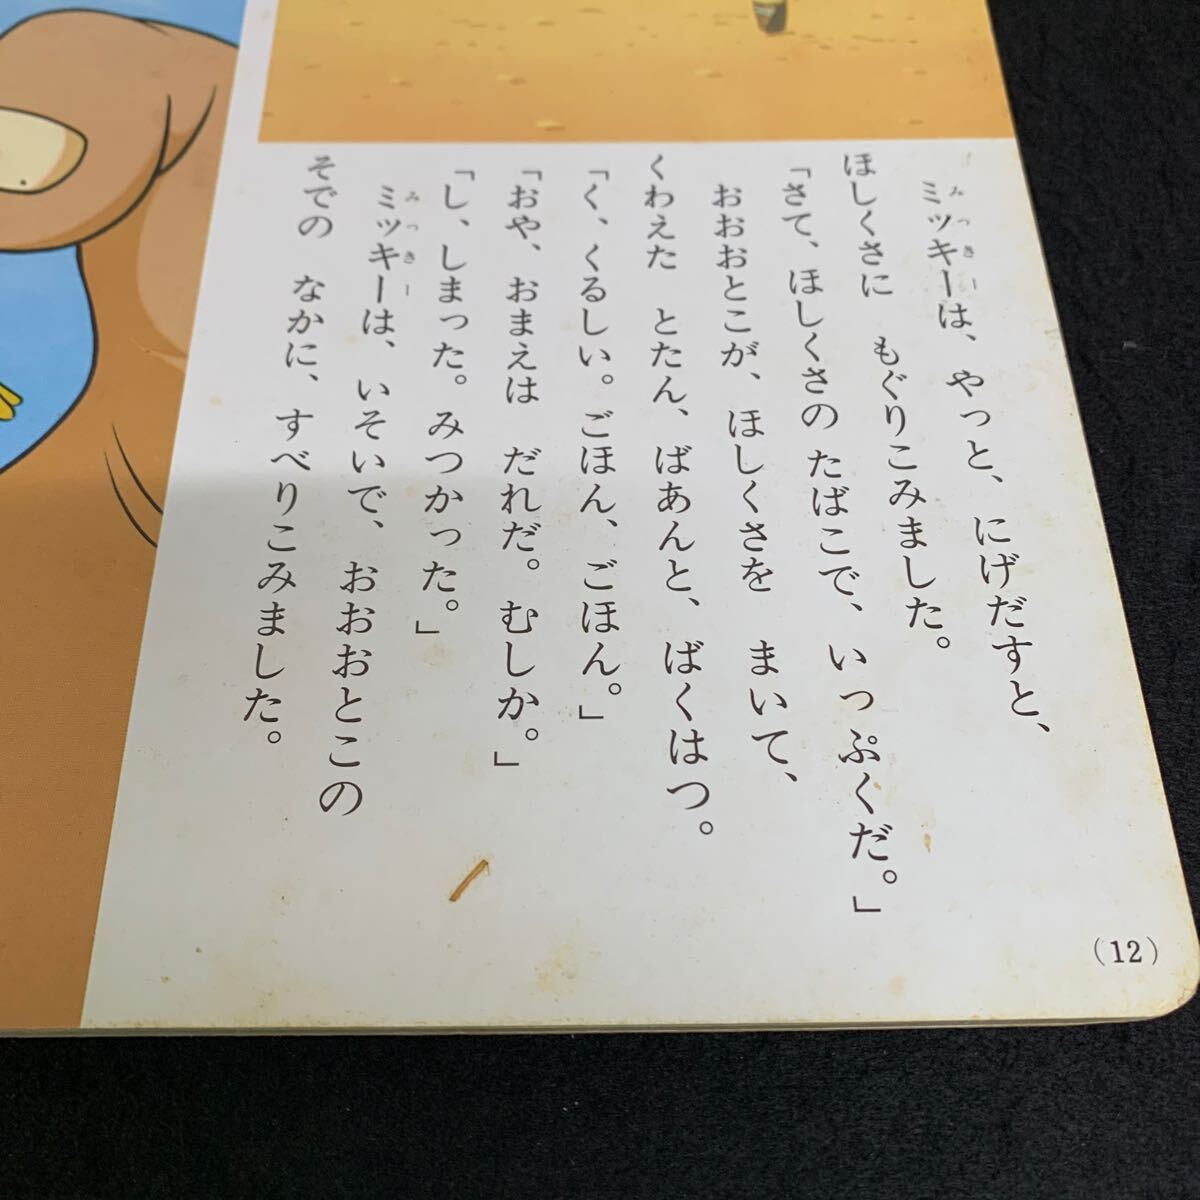 ミッキーは、やっと、にげだすと、
ほしくさに もぐりこみました。
「さて、ほしくさの たばこで、いっぷくだ。」
おおおとこが、ほしくさを まいて、
くわえた とたん、ばあんと、ばくはつ。
「く、くるしい。ごほん、ごほん。」
「おや、おまえは だれだ。むしか。」
「し、しまった。みつかった。」
ミッキーは、いそいで、おおおとこの
そでの なかに、すべりこみました。
(12)